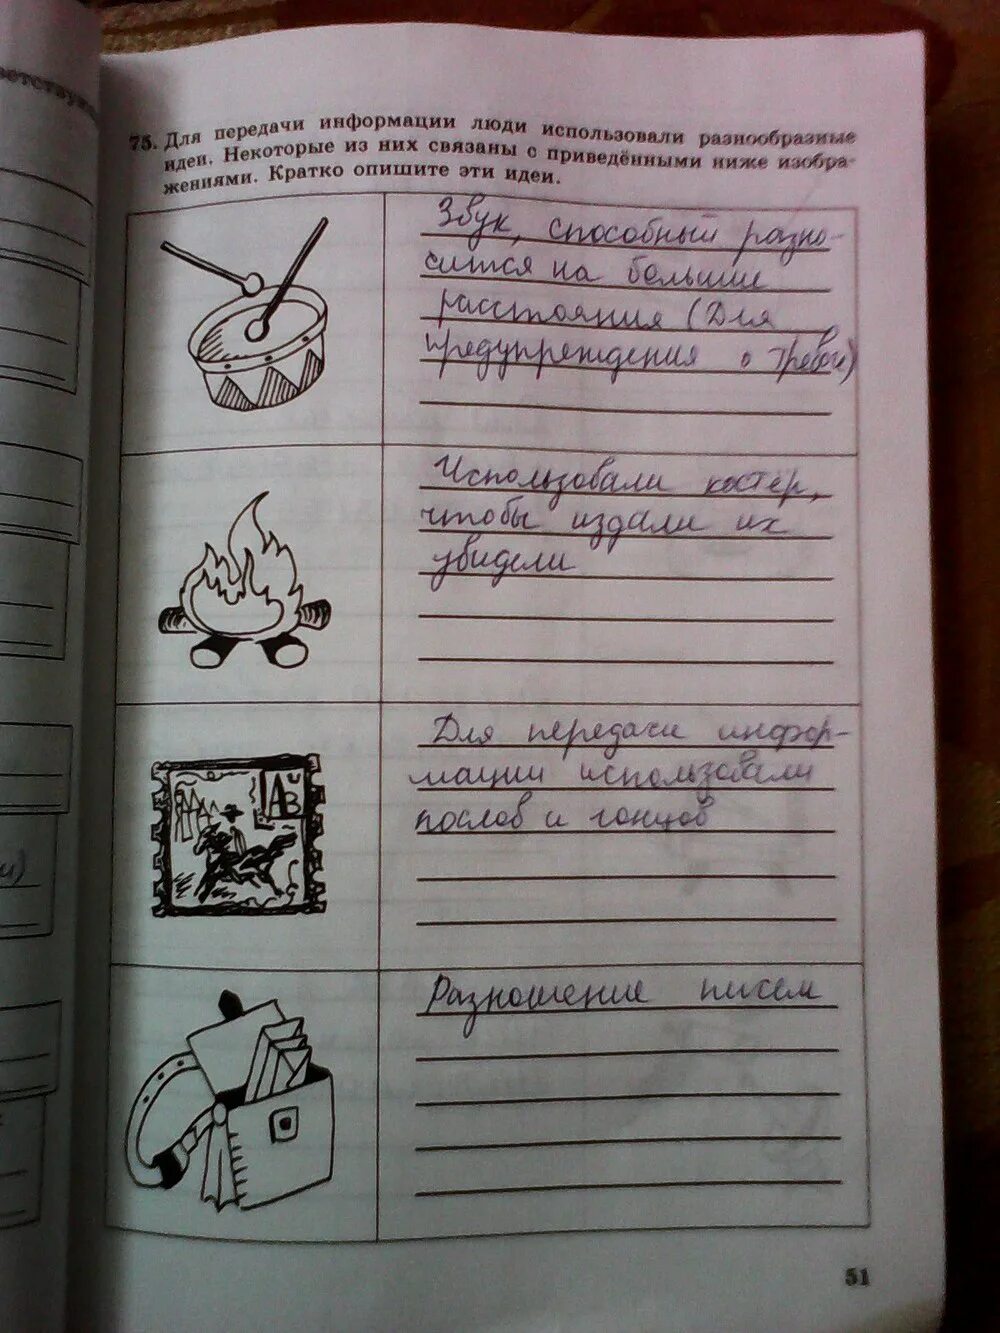 75. Для передачи информации люди использовали разнообразные
идеи. Некоторые из них связаны с приведёнными ниже изобра-
жениями. Кратко опишите эти идеи.
Звук, способный разно-
сится на большие
расстояния (Для
предупреждения о тревоги)
Использовали костёр,
чтобы издали их
увидели
Для передачи инфор-
мации использовали
послов и гонцов
Разношение писем
51